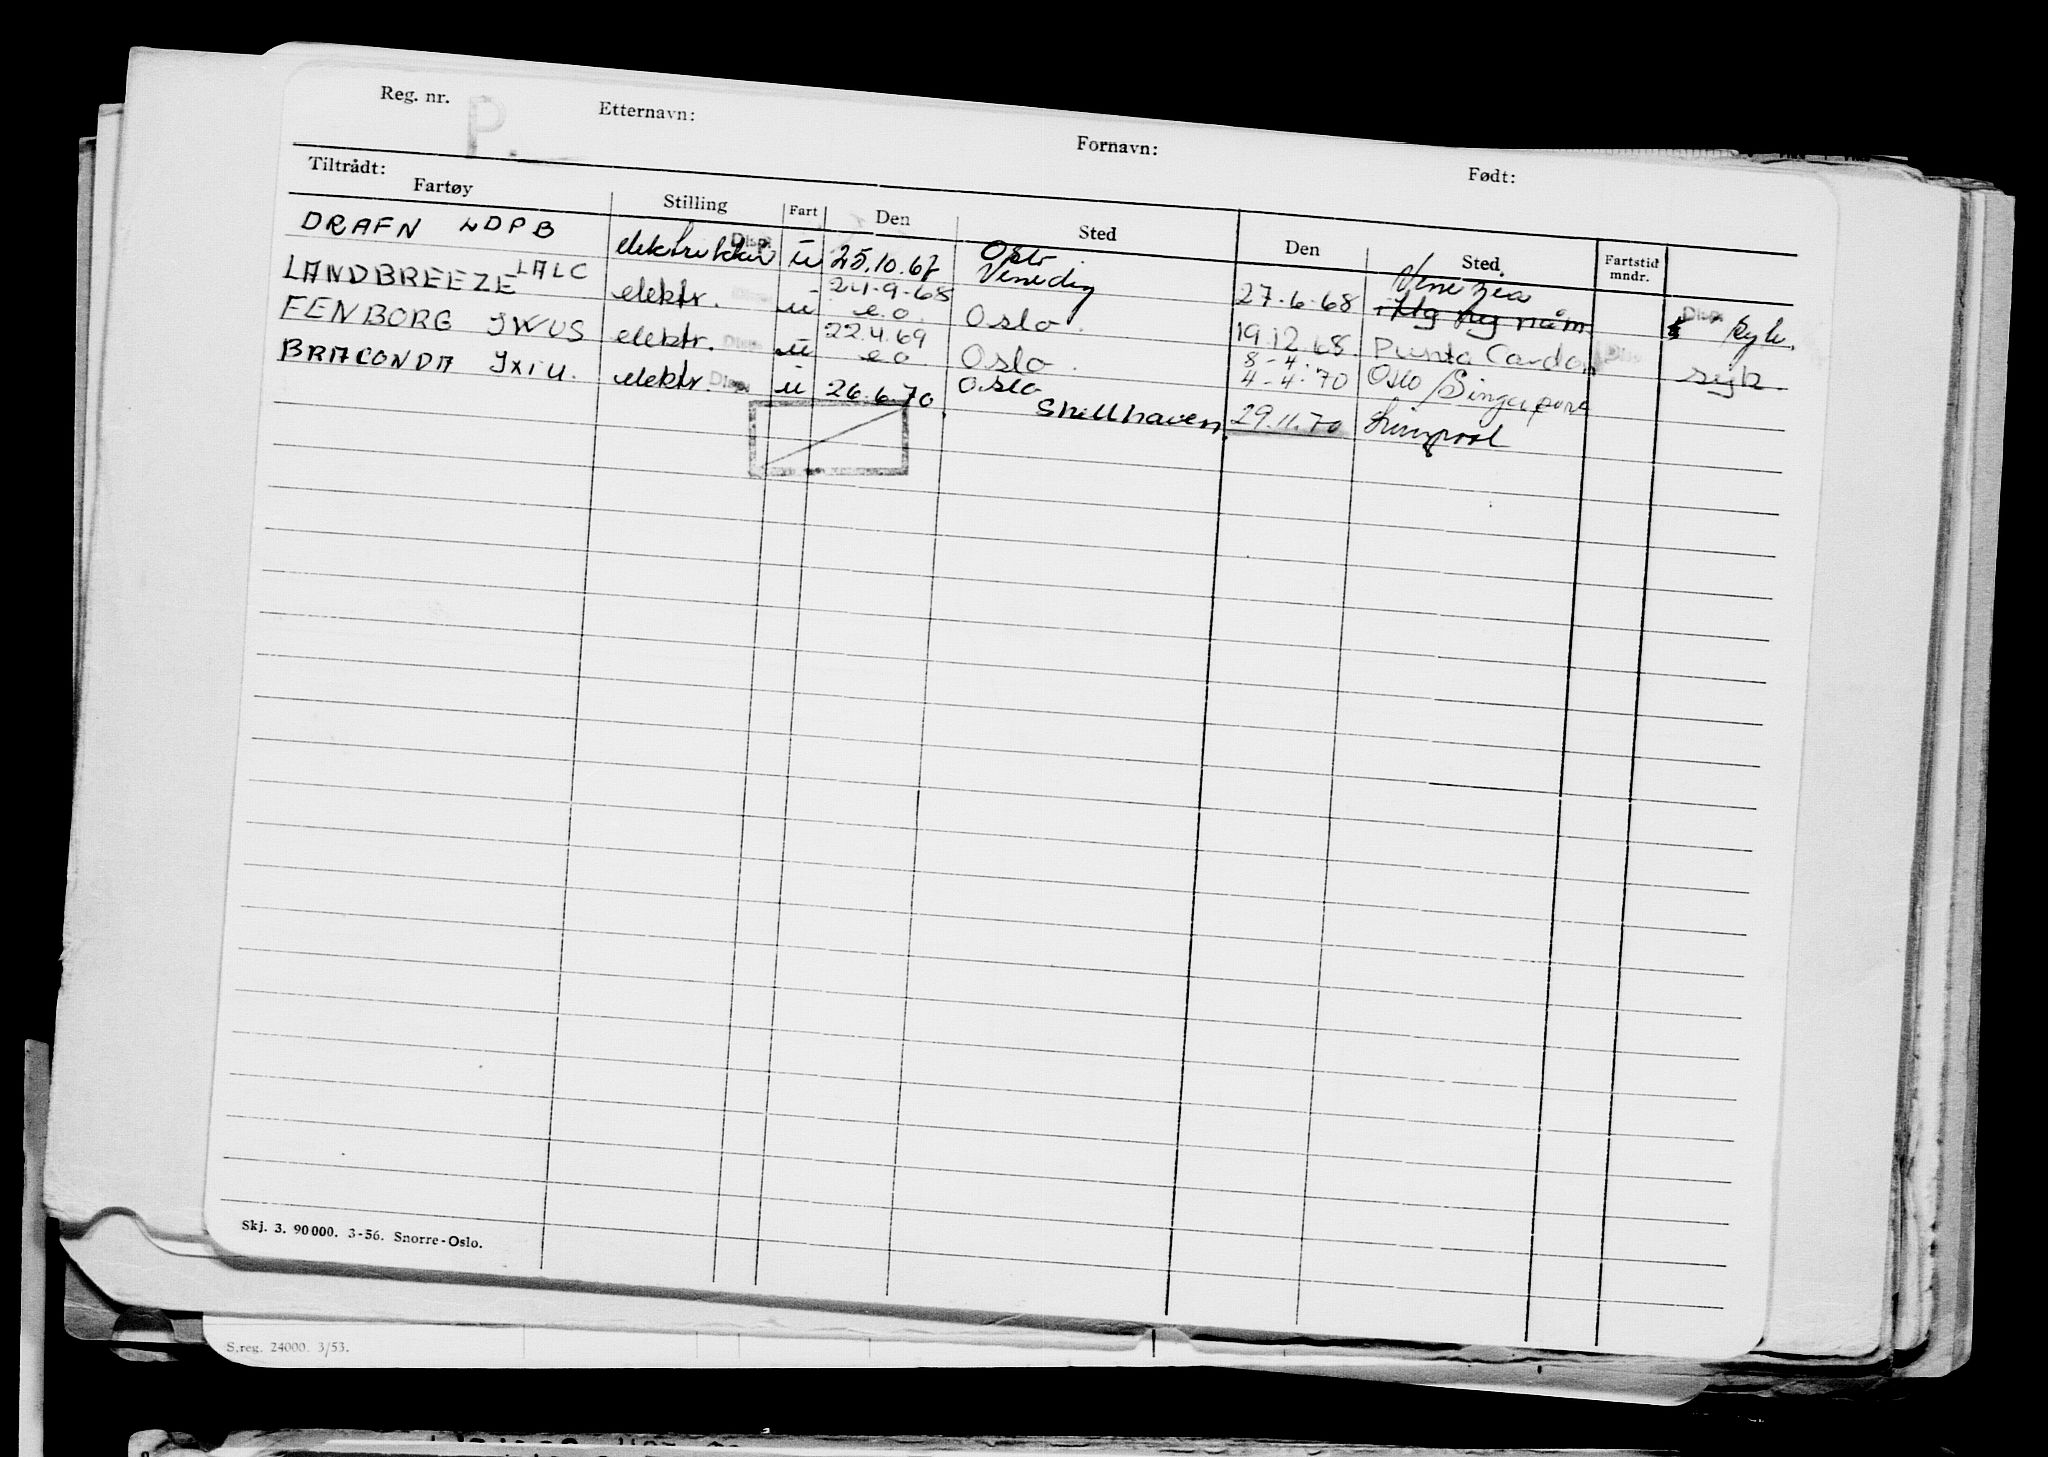 Reg. nr. P. Etternavn: Fornavn: Født:
Tiltrådt:
Fartøy Stilling Fart Den Sted Den Sted Fartstid mndr.
DRAFN LDPB elektrikker u 25.10.67 Oslo 27.6.68 Venezia
LANDBREEZE LALC elektr. u 24.9.68 e.o. Venedig Oslo. 19.12.68. Punto Cardon syk.
FENBORG JWUS elektr. u 22.4.69 e.o. Oslo. 8-4. 4-4-70 Oslo/Singapore
BRACONDA JXIU. elektr. u 26.6.70. Oslo Shellhaven 29.11.70 Liverpool
Skj. 3. 90000. 3-56. Snorre-Oslo.
S.reg. 24000. 3/53.